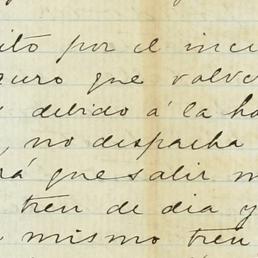 ito por el ince
uro que volve
debido á la ha
, no despacha
rá que salir m
tren de dia y
mismo tren